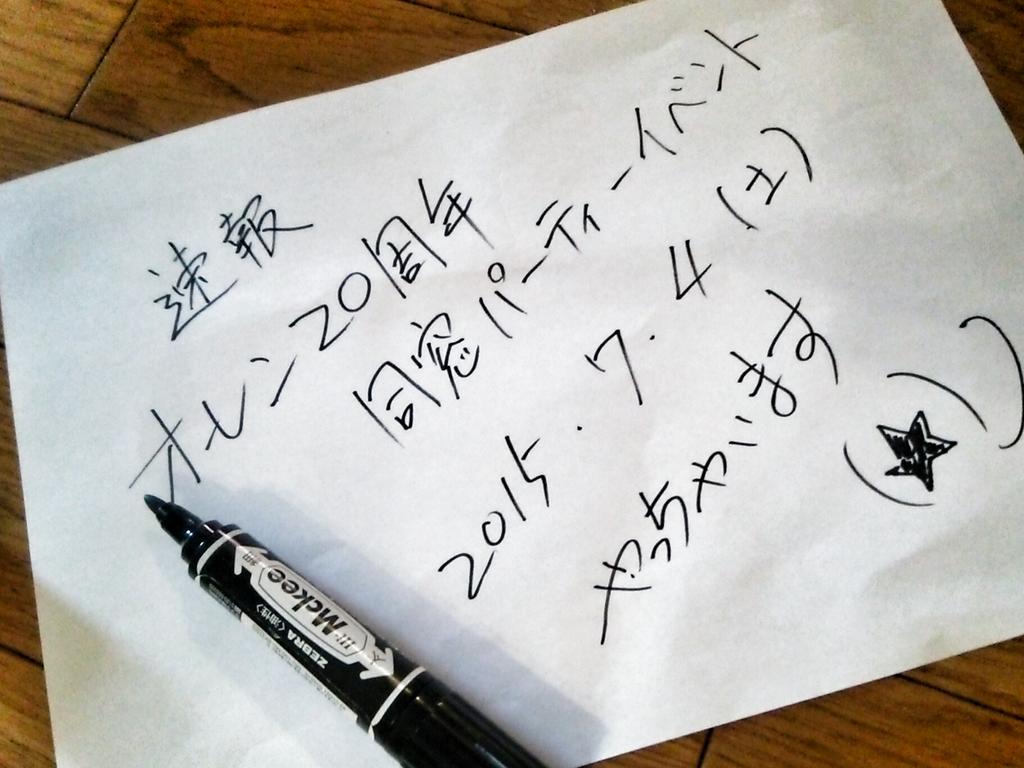 速報
オレン20周年
同窓パーティーイベント
2015.7.4(土)
やっちゃいます
(★)
Mckee
ZEBRA 〈油性〉